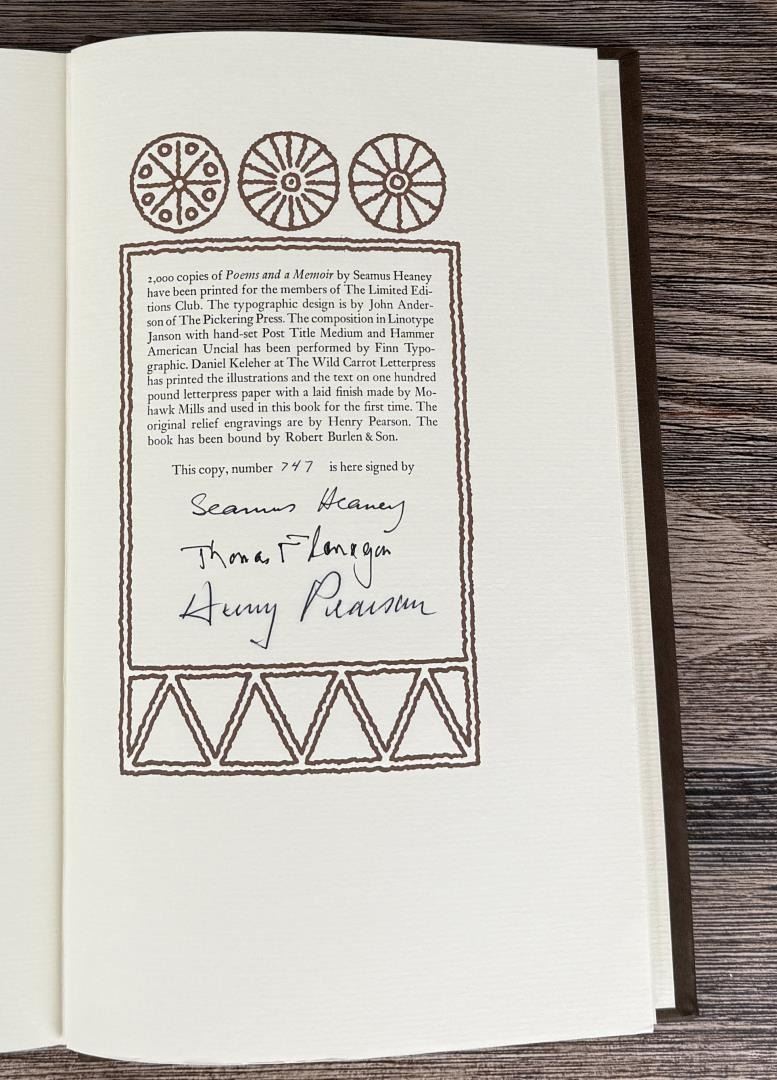 2,000 copies of Poems and a Memoir by Seamus Heaney
have been printed for the members of The Limited Edi-
tions Club. The typographic design is by John Ander-
son of The Pickering Press. The composition in Linotype
Janson with hand-set Post Title Medium and Hammer
American Uncial has been performed by Finn Typo-
graphic. Daniel Keleher at The Wild Carrot Letterpress
has printed the illustrations and the text on one hundred
pound letterpress paper with a laid finish made by Mo-
hawk Mills and used in this book for the first time. The
original relief engravings are by Henry Pearson. The
book has been bound by Robert Burlen & Son.
This copy, number 747 is here signed by
Seamus Heaney
Thomas Flanagan
Henry Pearson